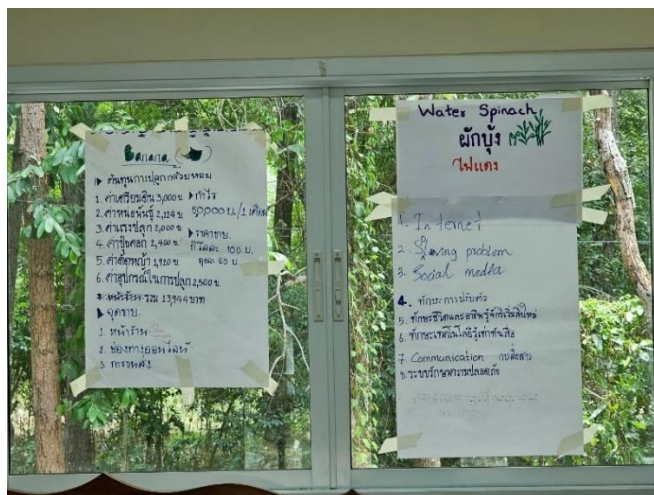 Banana
▶ ต้นทุนการปลูกกล้วยหอม
1. ค่าเตรียมดิน 3,000 บ
2. ค่าหน่อพันธุ์ 2,124 บ
3. ค่าแรงปลูก 2,000 บ
4. ค่าปุ๋ยคอก 2,400 บ
5. ค่าตัดหญ้า 1,920 บ
6. ค่าอุปกรณ์ในการปลูก 2,500 บ
รวม 13,944 บาท
▶ กำไร
50,000 บ./
▶ ราคาขาย
กิโลละ 100 บ.
ถุงละ 50 บ.
▶ จุดขาย
1. หน้าร้าน
2. ช่องทางออนไลน์
3.
Water Spinach
ผักบุ้ง
ไฟแดง
1. Internet
2. problem
3. Social media
4. ทักษะการปรับตัว
5. ทักษะชีวิตและอาชีพรู้จักริเริ่มสิ่งใหม่
6. ทักษะเทคโนโลยีรู้เท่าทันสื่อ
7. Communication การสื่อสาร
8. ระบบรักษาความปลอดภัย